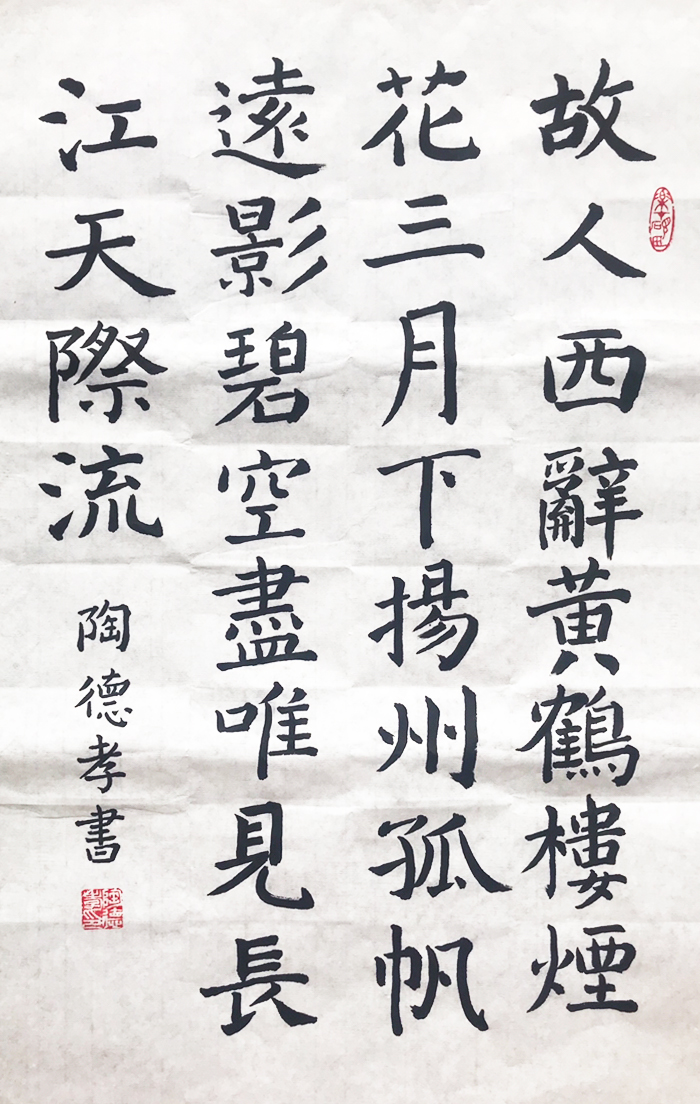 故人西辭黃鶴樓煙
花三月下揚州孤帆
遠影碧空盡唯見長
江天際流
陶德孝書